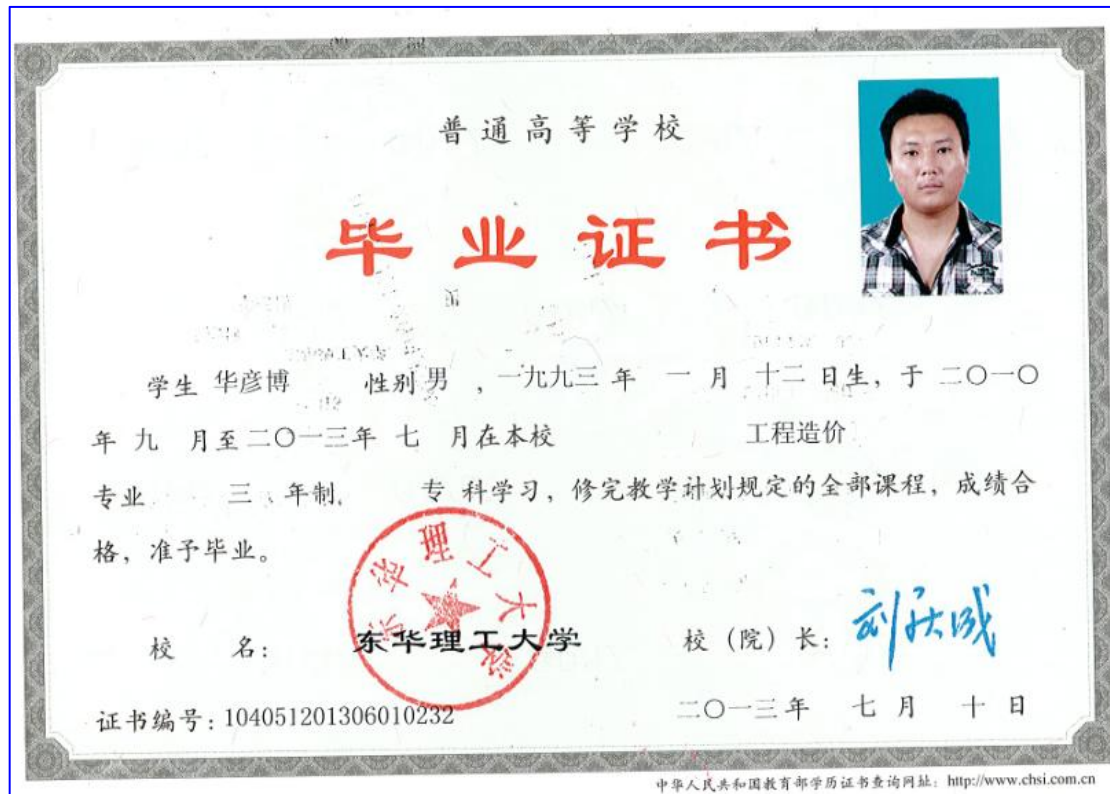 普通高等学校
毕业证书
学生 华彦博 性别 男 ，一九九三 年 一 月 十二 日生，于 二〇一〇
年 九 月至二〇一三年 七 月在本校 工程造价
专业 三 年制， 专 科学习，修完教学计划规定的全部课程，成绩合
格，准予毕业。
东华理工大学
校 名： 东华理工大学 校（院）长：
证书编号：104051201306010232 二〇一三年 七 月 十 日
中华人民共和国教育部学历证书查询网址：http://www.chsi.com.cn